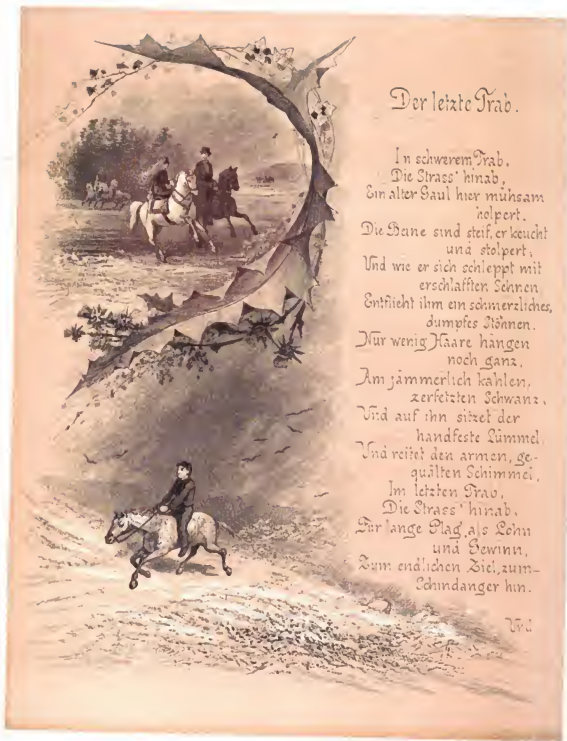 Der letzte Trab.
In schwerem Trab,
Die Strass' hinab,
Ein alter Gaul hier mühsam
holpert.
Die Beine sind steif, er keucht
und stolpert,
Und wie er sich schleppt mit
erschlafften Sehnen,
Entflieht ihm ein schmerzliches,
dumpfes Stöhnen.
Nur wenig Haare hängen
noch ganz,
Am jämmerlich kahlen,
zerfetzten Schwanz,
Und auf ihn sitzet der
handfeste Lümmel,
Und reitet den armen, ge-
quälten Schimmel,
Im letzten Trab,
Die Strass' hinab,
Für lange Plag, als Lohn
und Gewinn,
Zum endlichen Ziel, zum-
Schindanger hin.